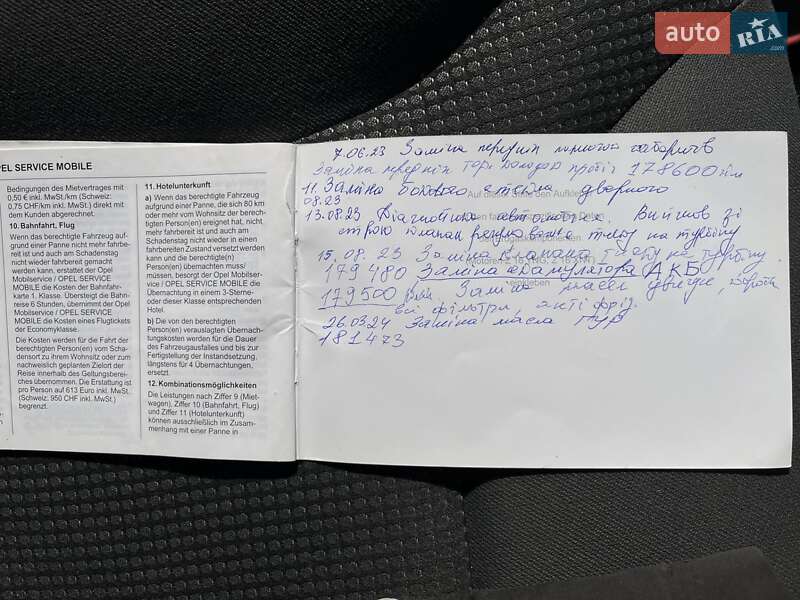 auto RIA.com
OPEL SERVICE MOBILE
Bedingungen des Mietvertrages mit
0,50 € inkl. MwSt./km (Schweiz:
0,75 CHF/km inkl. MwSt.) direkt mit
dem Kunden abgerechnet.
10. Bahnfahrt, Flug
Wenn das berechtigte Fahrzeug auf-
grund einer Panne nicht mehr fahrbe-
reit ist und auch am Schadenstag
nicht wieder fahrbereit gemacht
werden kann, erstattet der Opel
Mobilservice / OPEL SERVICE
MOBILE die Kosten der Bahnfahr-
karte 1. Klasse. Übersteigt die Bahn-
reise 6 Stunden, übernimmt der Opel
Mobilservice / OPEL SERVICE
MOBILE die Kosten eines Flugtickets
der Economyklasse.
Die Kosten werden für die Fahrt der
berechtigten Person(en) vom Scha-
densort zu ihrem Wohnsitz oder zum
nachweislich geplanten Zielort der
Reise innerhalb des Geltungsberei-
ches übernommen. Die Erstattung ist
pro Person auf 613 Euro inkl. MwSt.
(Schweiz: 950 CHF inkl. MwSt.)
begrenzt.
11. Hotelunterkunft
a) Wenn das berechtigte Fahrzeug
aufgrund einer Panne, die sich 80 km
oder mehr vom Wohnsitz der berech-
tigten Person(en) ereignet hat, nicht
mehr fahrbereit ist und auch am
Schadenstag nicht wieder in einen
fahrbereiten Zustand versetzt werden
kann und die berechtigte(n)
Person(en) übernachten muss/
müssen, besorgt der Opel Mobilser-
vice / OPEL SERVICE MOBILE die
Übernachtung in einem 3-Sterne-
oder dieser Klasse entsprechenden
Hotel.
b) Die von den berechtigten
Person(en) verauslagten Übernach-
tungskosten werden für die Dauer
des Fahrzeugausfalles und bis zur
Fertigstellung der Instandsetzung,
längstens für 4 Übernachtungen,
ersetzt.
12. Kombinationsmöglichkeiten
Die Leistungen nach Ziffer 9 (Miet-
wagen), Ziffer 10 (Bahnfahrt, Flug)
und Ziffer 11 (Hotelunterkunft)
können ausschließlich im Zusam-
menhang mit einer Panne in
7.06.23 Заміна передніх габаритів
Заміна передніх пробіг 178600 км
11. Заміна бокового стекла дверного
08.23
13.08.23 Діагностика Вийшов зі
строю клапан тиску на турбіну
15.08.23 Заміна клапана тиску на турбіну.
179480 Заміна акамулятора АКБ
179500 км Заміна масел двигун,
всі фільтра, антіфріз.
26.03.24 Заміна масла ГУР
181473